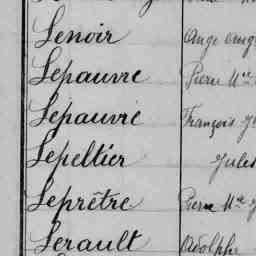 Lenoir Ange
Lepauvre Pierre Mie
Lepauvre François
Lepeltier Jules
Leprêtre Pierre Mie
Lerault Adolphe